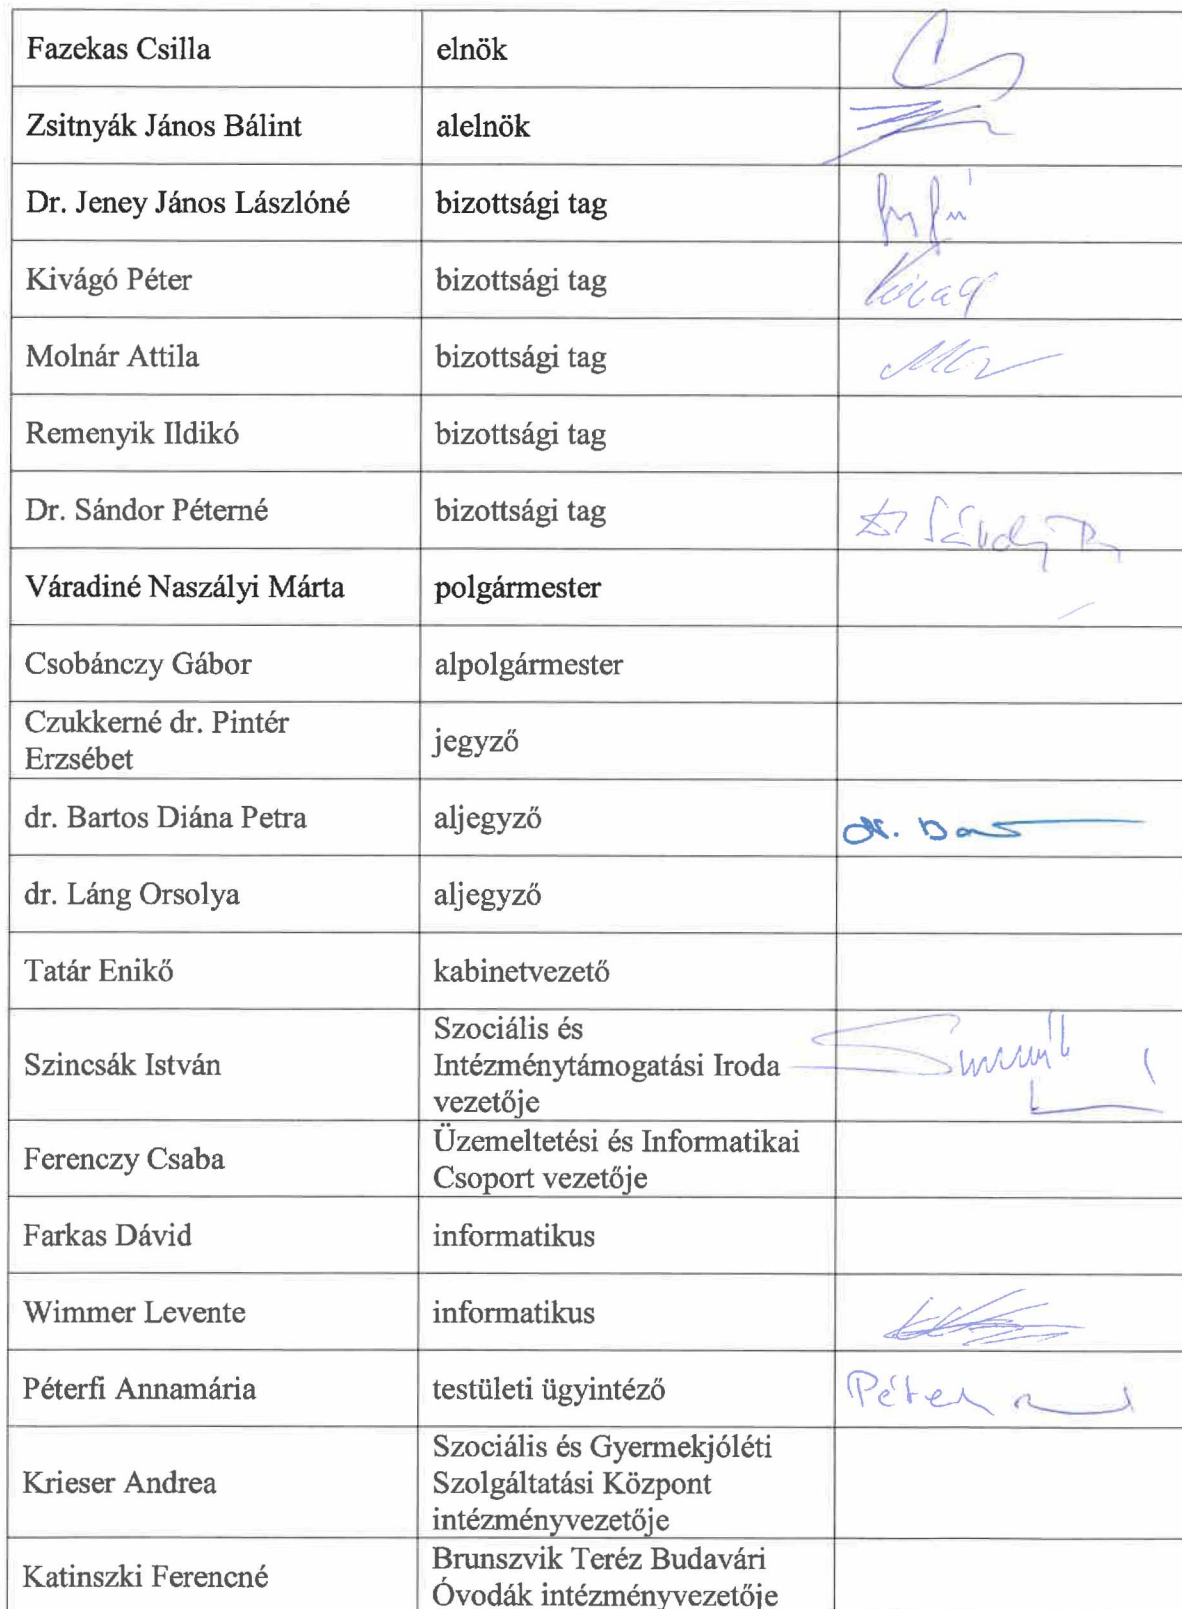 Fazekas Csilla
elnök
Zsitnyák János Bálint
alelnök
Dr. Jeney János Lászlóné
bizottsági tag
Kivágó Péter
bizottsági tag
Molnár Attila
bizottsági tag
Remenyik Ildikó
bizottsági tag
Dr. Sándor Péterné
bizottsági tag
Váradiné Naszályi Márta
polgármester
Csobánczy Gábor
alpolgármester
Czukkerné dr. Pintér
Erzsébet
jegyző
dr. Bartos Diána Petra
aljegyző
dr. Láng Orsolya
aljegyző
Tatár Enikő
kabinetvezető
Szincsák István
Szociális és
Intézménytámogatási Iroda
vezetője
Ferenczy Csaba
Üzemeltetési és Informatikai
Csoport vezetője
Farkas Dávid
informatikus
Wimmer Levente
informatikus
Péterfi Annamária
testületi ügyintéző
Krieser Andrea
Szociális és Gyermekjóléti
Szolgáltatási Központ
intézményvezetője
Katinszki Ferencné
Brunszvik Teréz Budavári
Óvodák intézményvezetője